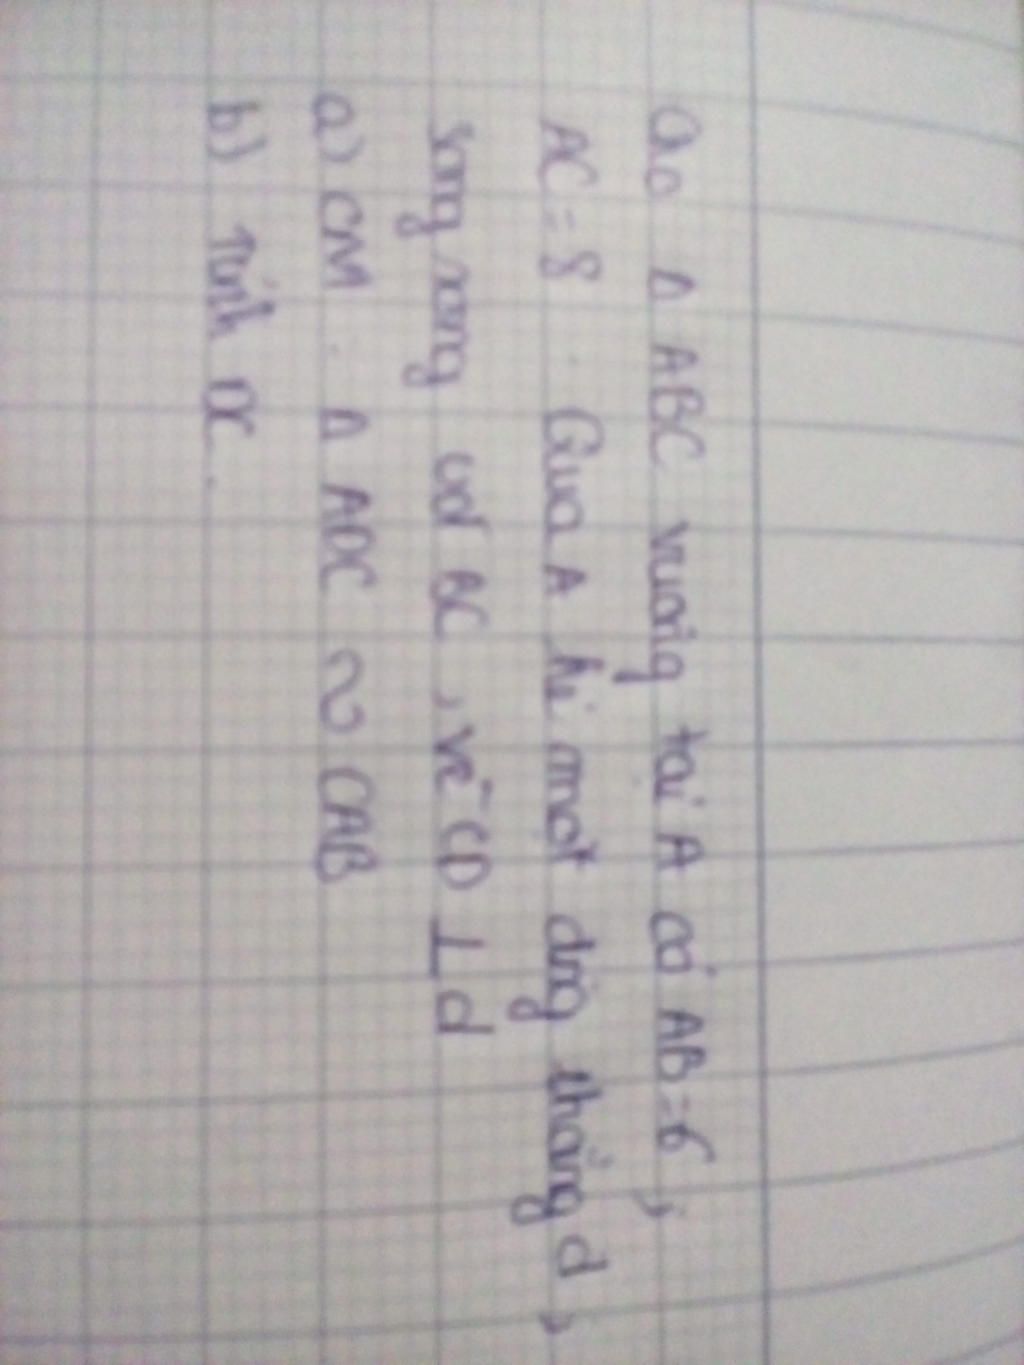 Cho Δ ABC vuông tại A có AB = 6,
AC = 8. Qua A kẻ một đng thẳng d,
song song với BC, vẽ CD ⊥ d
a) CM Δ ADC ∽ CAB
b) Tính DC.